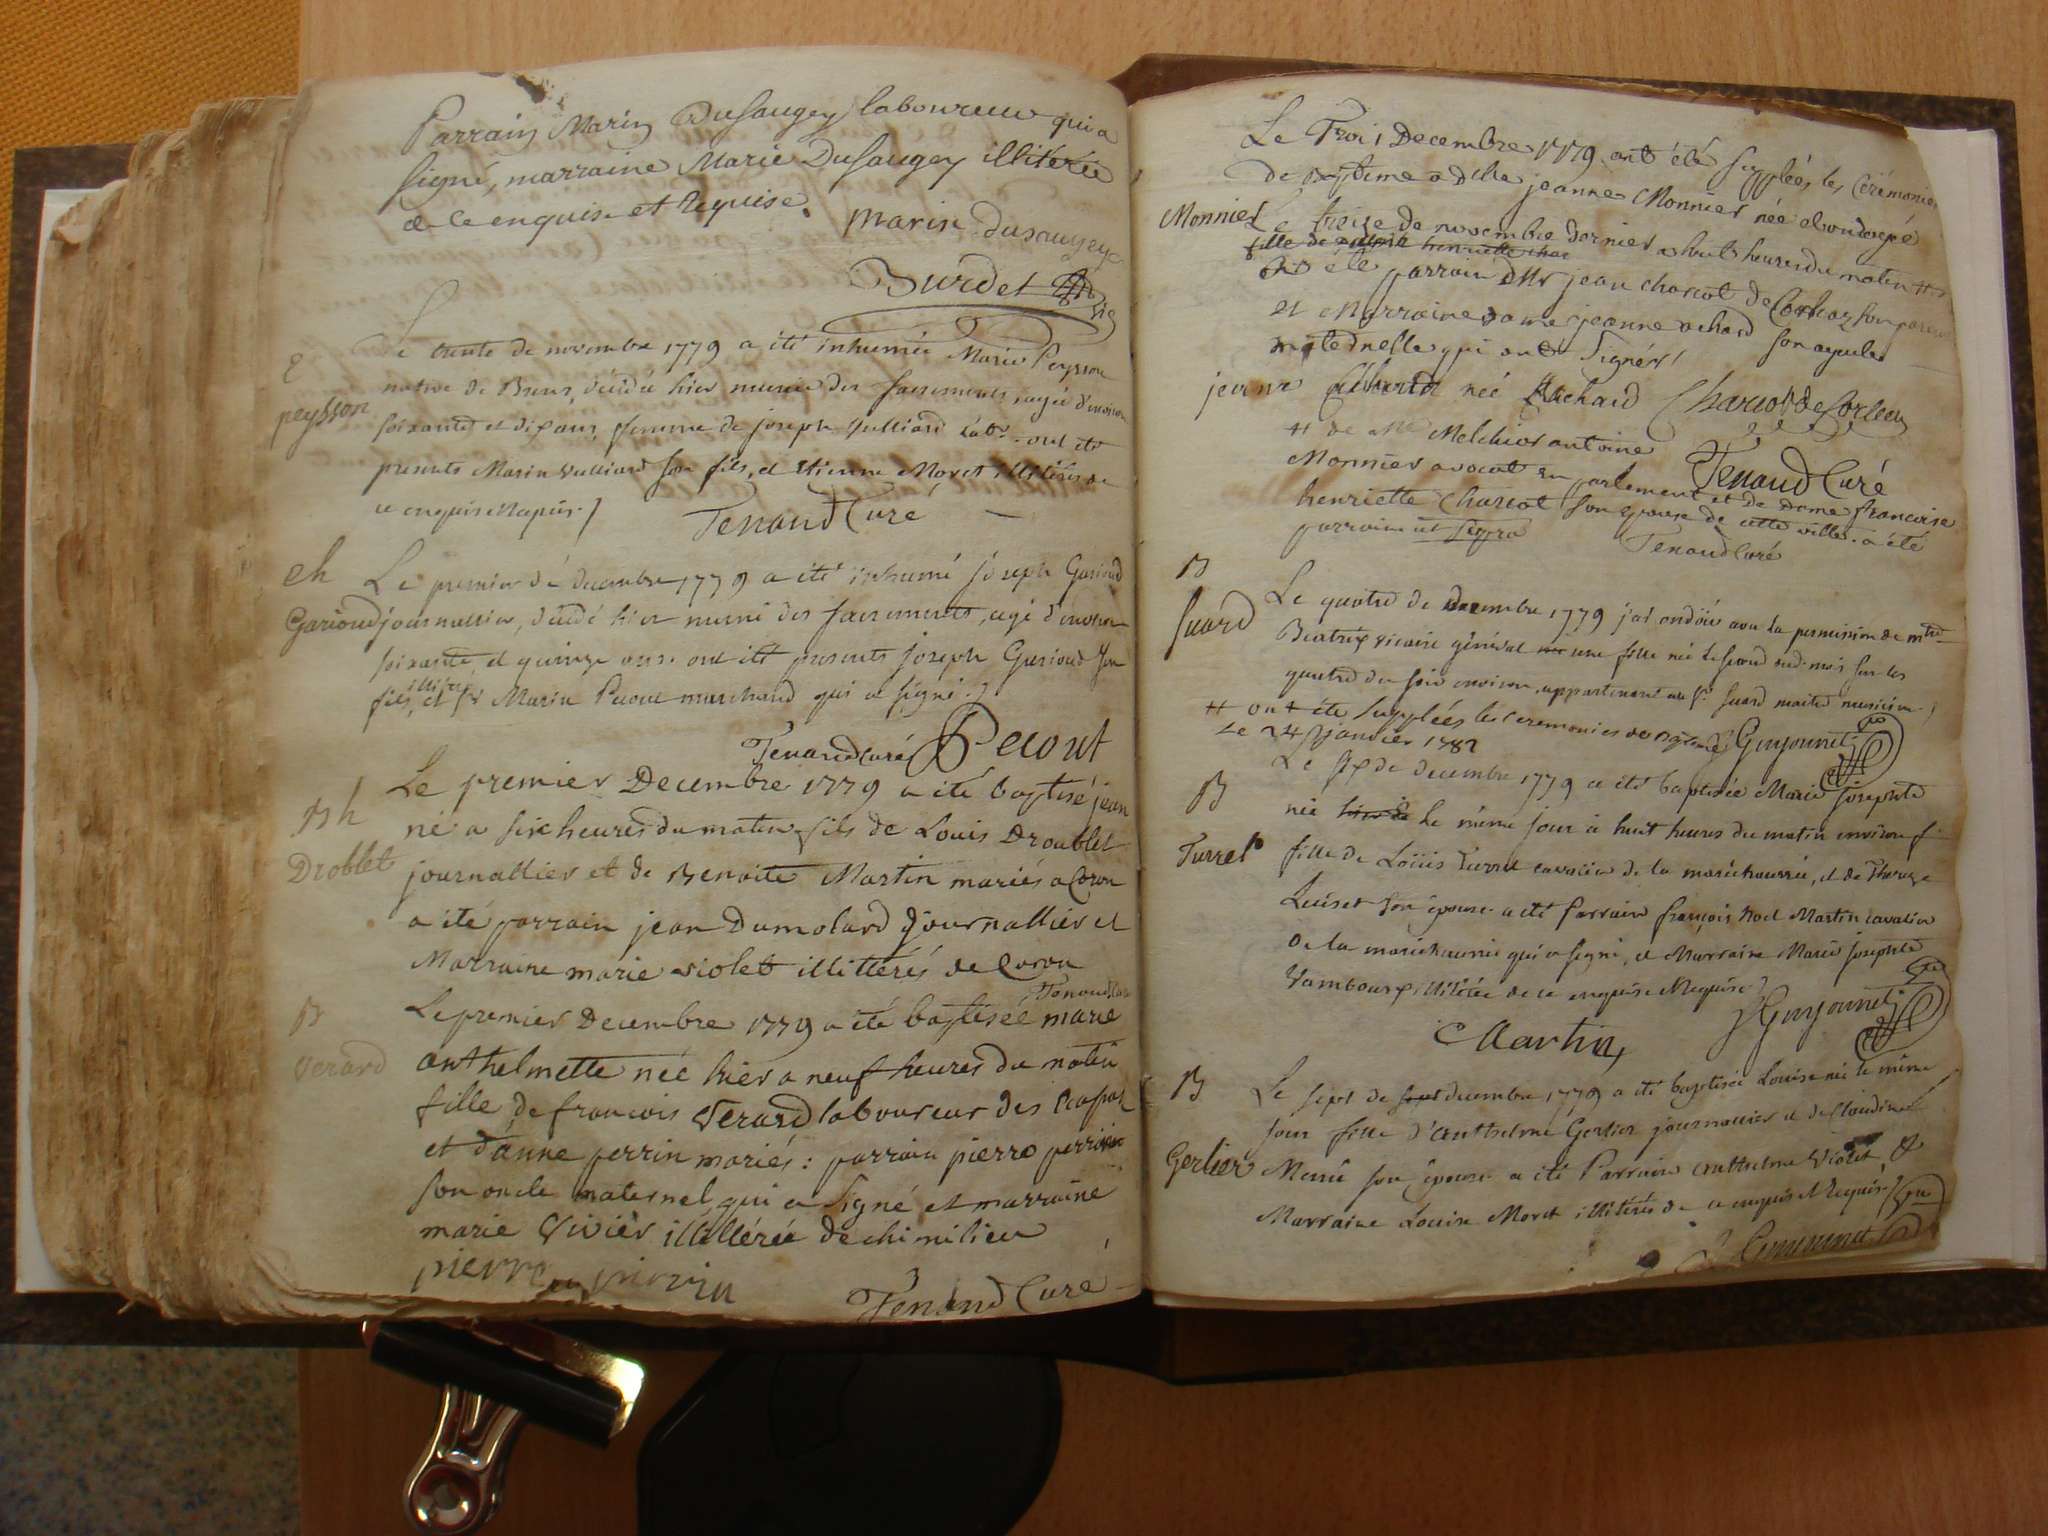 Parrain Marin Dusaugey laboureur qui a
signé, marraine Marie Dusaugey illitérée
de ce enquise et requise.
marin dusaugey
Burdet
Le trente de novembre 1779 a été inhumée Marie Peysson
peysson
native de Brens, décédée hier munie des sacrements, agée d'environ
soixante et dix ans, femme de joseph Vulliard lab.r ont été
presents Marin Vulliard son fils, et Etienne Moret illitérés de
ce enquis et requis.
Tenaud Curé
eh
Le premier de decembre 1779 a été inhumé joseph Garioud
Garioud
journallier, décédé hier muni des sacrements, agé d'environ
soixante et quinze ans. ont été presents joseph Garioud son
fils, illiteré et sr Marin Pecout marchand qui a signé.
Tenaud Curé Pecout
Bh
Le premier Decembre 1779 a été baptisé jean
né a six heures du matin fils de Louis Droublet
Droblet
journallier et de Benoite Martin mariés a Coron
a été parrain jean Dumolard journallier et
Marraine marie violet illittérés de Coron
Tenaud Curé
B
Le premier Decembre 1779 a été baptisée marie
verard
anthelmette née hier a neuf heures du matin
fille de francois Verard laboureur des
et d'anne perrin mariés : parrain pierre perrin
son oncle maternel qui a signé et marraine
marie Vivier illittérée de chimilieu
pierre perrin
Tenaud Curé
Le Trois Decembre 1779 ont été supplées les cérémonies
de Baptême a Dlle jeanne Monnier née et ondoyée
Monnier
Le treize de novembre dernier a huit heures du matin #
fille de henriette char
a été parrain Mr jean charcot de Corleaz son parent
et Marraine dame jeanne achard son ayeule
maternelle qui ont signés
jeanne née Achard Charcot de Corleaz
# de Me Melchior antoine
Monnier avocat en parlement et de Dame francoise
Tenaud Curé
henriette Charcot son epouse de cette ville. a été
parrain ut supra
Tenaud Curé
B
Suard
Le quatre de decembre 1779 j'ai ondoié avec la permission de mre
Beatrix vicaire général une fille née le second dud. mois sur les
quatre du soir environ, appartenant au Sr Suard maitre musicien.
# ont été supplées les ceremonies de Bapteme
Le 24 janvier 1782
Guyonnet
B
Le six de decembre 1779 a été baptisée Marie Josephte
née le même jour à huit heures du matin environ
Turrel
fille de Loüis Turrel cavalier de la maréchaussée, et de Therese
Luiset son épouse. a été Parrain françois noel Martin cavalier
de la maréchaussée qui a signé, et Marraine Marie Josephte
illitérée de ce enquise et requise.
Martin
Guyonnet
B
Le sept de decembre 1779 a été baptisée Louise née le même
jour fille d'Anthelme Gerlier journallier et de Claudine
Gerlier
son épouse. a été Parrain Anthelme Violet, et
Marraine Louise Moret illitérés de ce enquis et requis.
Guyonnet